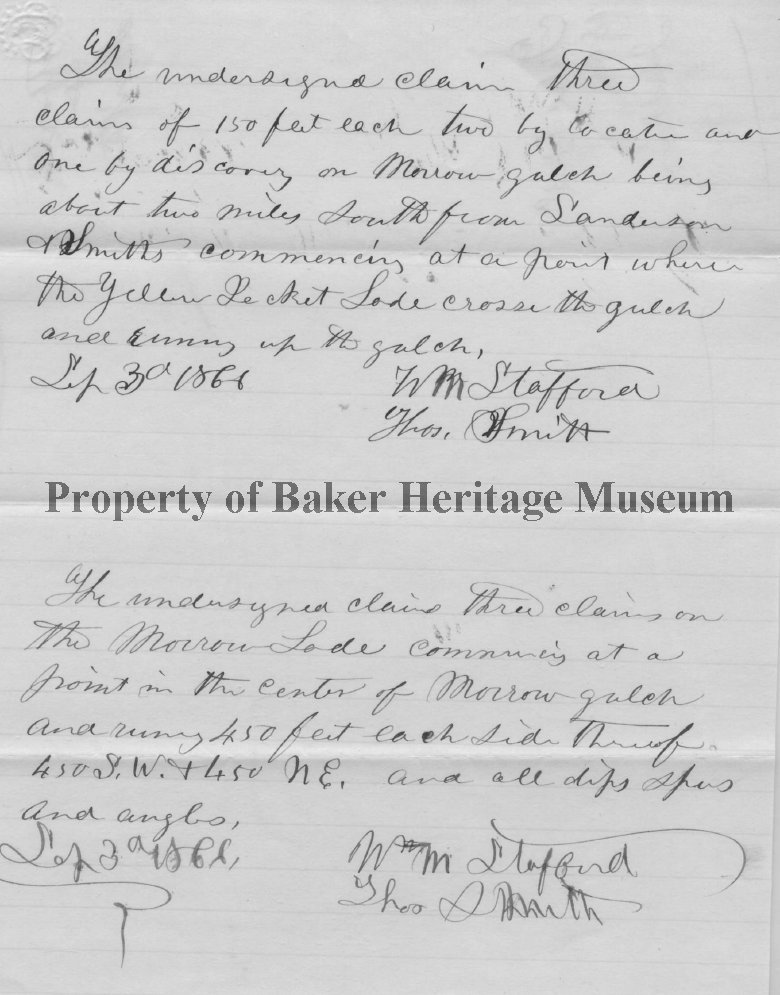 The undersigned claim three
claims of 150 feet each two by locatin and
one by discovery on Morrow gulch being
about two miles south from Sanderson
& Smiths commencing at a point where
the Yellow Jecket Lode crosse the gulch
and runing up the gulch,
Sep 3d 186
Wm Stafford
Thos. Smith
Property of Baker Heritage Museum
The undersigned claim three claims on
the Morrow Lode commincing at a
point in the center of Morrow gulch
and runing 450 feet each side thereof
450 S.W. & 450 N E. and all dips spurs
and angles,
Sep 3d 186
Wm M Stafford
Thos S Smith